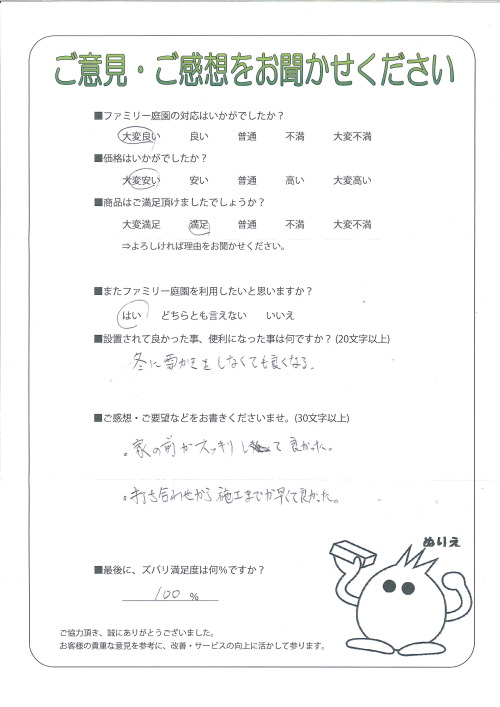 ご意見・ご感想をお聞かせください
■ファミリー庭園の対応はいかがでしたか？
大変良い 良い 普通 不満 大変不満
■価格はいかがでしたか？
大変安い 安い 普通 高い 大変高い
■商品はご満足頂けましたでしょうか？
大変満足 満足 普通 不満 大変不満
⇒よろしければ理由をお聞かせください。
■またファミリー庭園を利用したいと思いますか？
はい どちらとも言えない いいえ
■設置されて良かった事、便利になった事は何ですか？(20文字以上)
冬に雪かきをしなくても良くなる。
■ご感想・ご要望などをお書きくださいませ。(30文字以上)
。家の前がスッキリして良かった。
。打ち合わせから施工までが早くて良かった。
ぬりえ
■最後に、ズバリ満足度は何％ですか？
100 ％
ご協力頂き、誠にありがとうございました。
お客様の貴重な意見を参考に、改善・サービスの向上に活かして参ります。